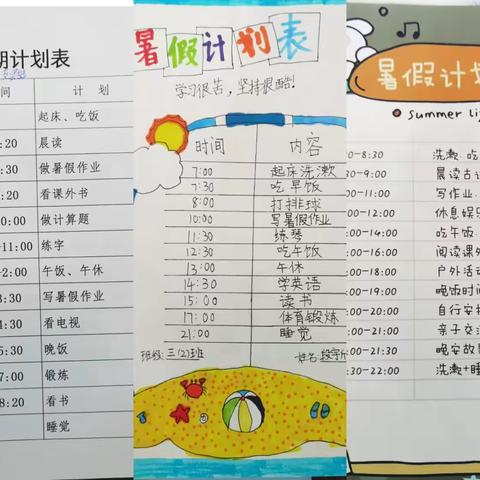 期计划表
间 计 划
起床、吃饭
:20 晨读
:30 做暑假作业
:20 看课外书
0:00 做计算题
-11:00 练字
-2:00 午饭、午休
3:30 写暑假作业
4:30 看电视
5:30 晚饭
7:00 锻炼
8:20 看书
睡觉
暑假计划表
学习很苦，坚持很酷！
时间 内容
7:00 起床洗漱
7:30 吃早饭
8:00 打排球
10:00 写暑假作业
11:30 练琴
12:30 吃午饭
13:00 午休
14:30 学英语
15:00 读书
17:00 体育锻炼
21:00 睡觉
班级:三(2)班 姓名:段宇
暑假计划
Summer li
0-8:30 洗漱 吃
0-09:00 晨读古
0-11:00 写作业
0-12:00 休息娱乐
吃午饭
0-16:00 阅读课外
0-18:00 户外活动
0-19:00 晚饭时间
0-20:00 自行安排
0-21:00 亲子交流
0-21:30 晚安故
0-22:30 洗漱+睡